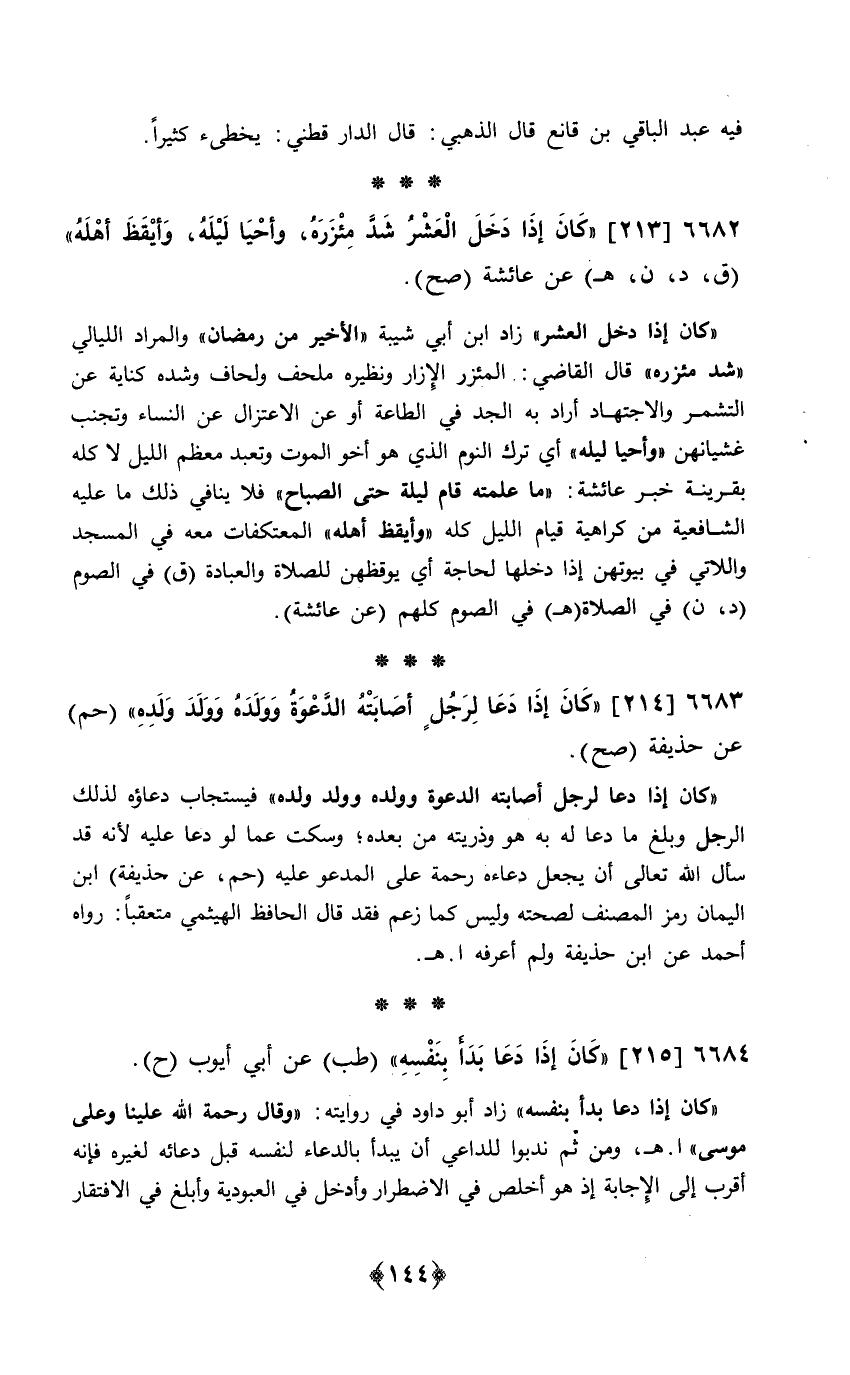 فيه عبد الباقي بن قانع قال الذهبي: قال الدار قطني: يخطىء كثيراً.
* * *
٦٦٨٢ [٢١٣] «كَانَ إذَا دَخَلَ الْعَشْرُ شَدَّ مِئْزَرَهُ، وأحْيَا لَيْلَهُ، وَأيْقَظَ أهْلَهُ»
(ق، د، ن، هـ) عن عائشة (صح).
«كان إذا دخل العشر» زاد ابن أبي شيبة «الأخير من رمضان» والمراد الليالي
«شد مئزره» قال القاضي: المئزر الإزار ونظيره ملحف ولحاف وشده كناية عن
التشمر والاجتهاد أراد به الجد في الطاعة أو عن الاعتزال عن النساء وتجنب
غشيانهن «وأحيا ليله» أي ترك النوم الذي هو أخو الموت وتعبد معظم الليل لا كله
بقرينة خبر عائشة: «ما علمته قام ليلة حتى الصباح» فلا ينافي ذلك ما عليه
الشافعية من كراهية قيام الليل كله «وأيقظ أهله» المعتكفات معه في المسجد
واللاتي في بيوتهن إذا دخلها لحاجة أي يوقظهن للصلاة والعبادة (ق) في الصوم
(د، ن) في الصلاة(هـ) في الصوم كلهم (عن عائشة).
* * *
٦٦٨٣ [٢١٤] «كَانَ إذَا دَعَا لِرَجُلٍ أصَابَتْهُ الدَّعْوَةُ وَوَلَدَهُ وَوَلَدَ وَلَدِهِ» (حم)
عن حذيفة (صح).
«كان إذا دعا لرجل أصابته الدعوة وولده وولد ولده» فيستجاب دعاؤه لذلك
الرجل وبلغ ما دعا له به هو وذريته من بعده؛ وسكت عما لو دعا عليه لأنه قد
سأل الله تعالى أن يجعل دعاءه رحمة على المدعو عليه (حم، عن حذيفة) ابن
اليمان رمز المصنف لصحته وليس كما زعم فقد قال الحافظ الهيثمي متعقباً: رواه
أحمد عن ابن حذيفة ولم أعرفه ا.هـ.
* * *
٦٦٨٤ [٢١٥] «كَانَ إذَا دَعَا بَدَأَ بِنَفْسِهِ» (طب) عن أبي أيوب (ح).
«كان إذا دعا بدأ بنفسه» زاد أبو داود في روايته: «وقال رحمة الله علينا وعلى
موسى» ا.هـ، ومن ثم ندبوا للداعي أن يبدأ بالدعاء لنفسه قبل دعائه لغيره فإنه
أقرب إلى الإجابة إذ هو أخلص في الاضطرار وأدخل في العبودية وأبلغ في الافتقار
﴿١٤٤﴾